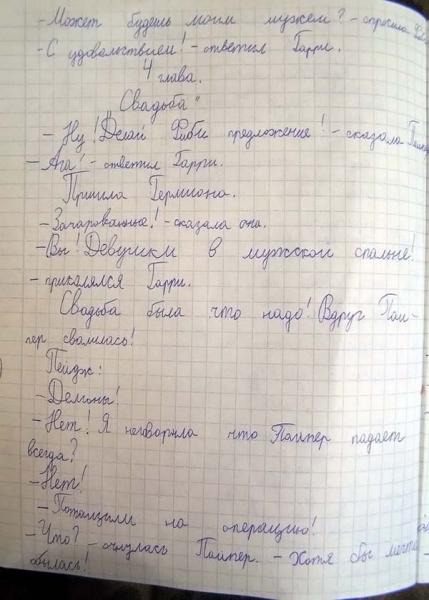 - Может будешь моим мужем? - спросила
- С удовольствием! - ответил Гарри.
4 глава.
„Свадьба"
- Ну! Делай Фиби предложение! - сказала
- Ага! - ответил Гарри.
Пришла Гермиона.
- Зачарованные! - сказала она.
- Вы! Девушки в мужской спальне!
- прикалялся Гарри.
Свадьба была что надо! Вдруг Пай-
пер свалилась!
Пейдж:
- Демоны!
- Нет! Я неговорила что Пайпер падает
всегда?
- Нет!
- Потащили на операцию!
- Что? - очнулась Пайпер. - Хотя бы мечта
сбылась!